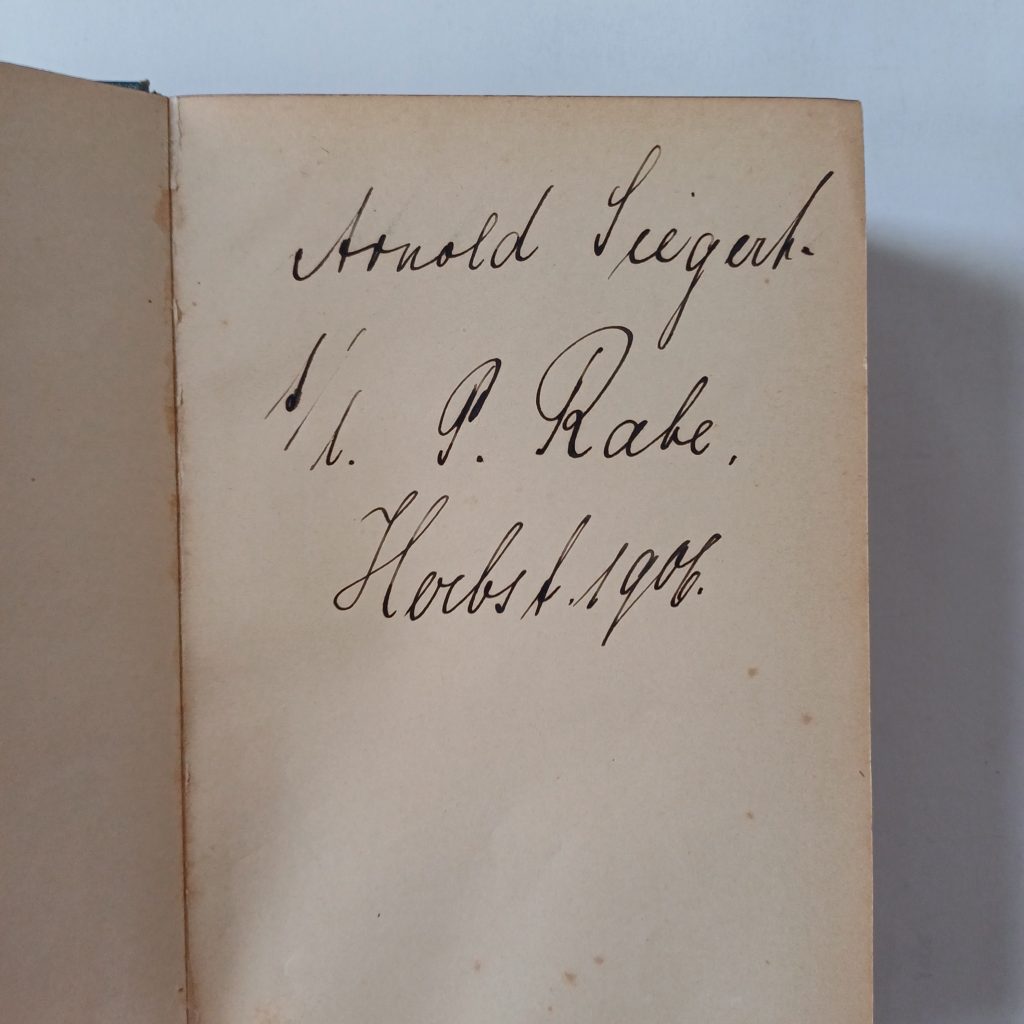 Arnold Siegert.
s/l. P. Rabe.
Herbst. 1906.